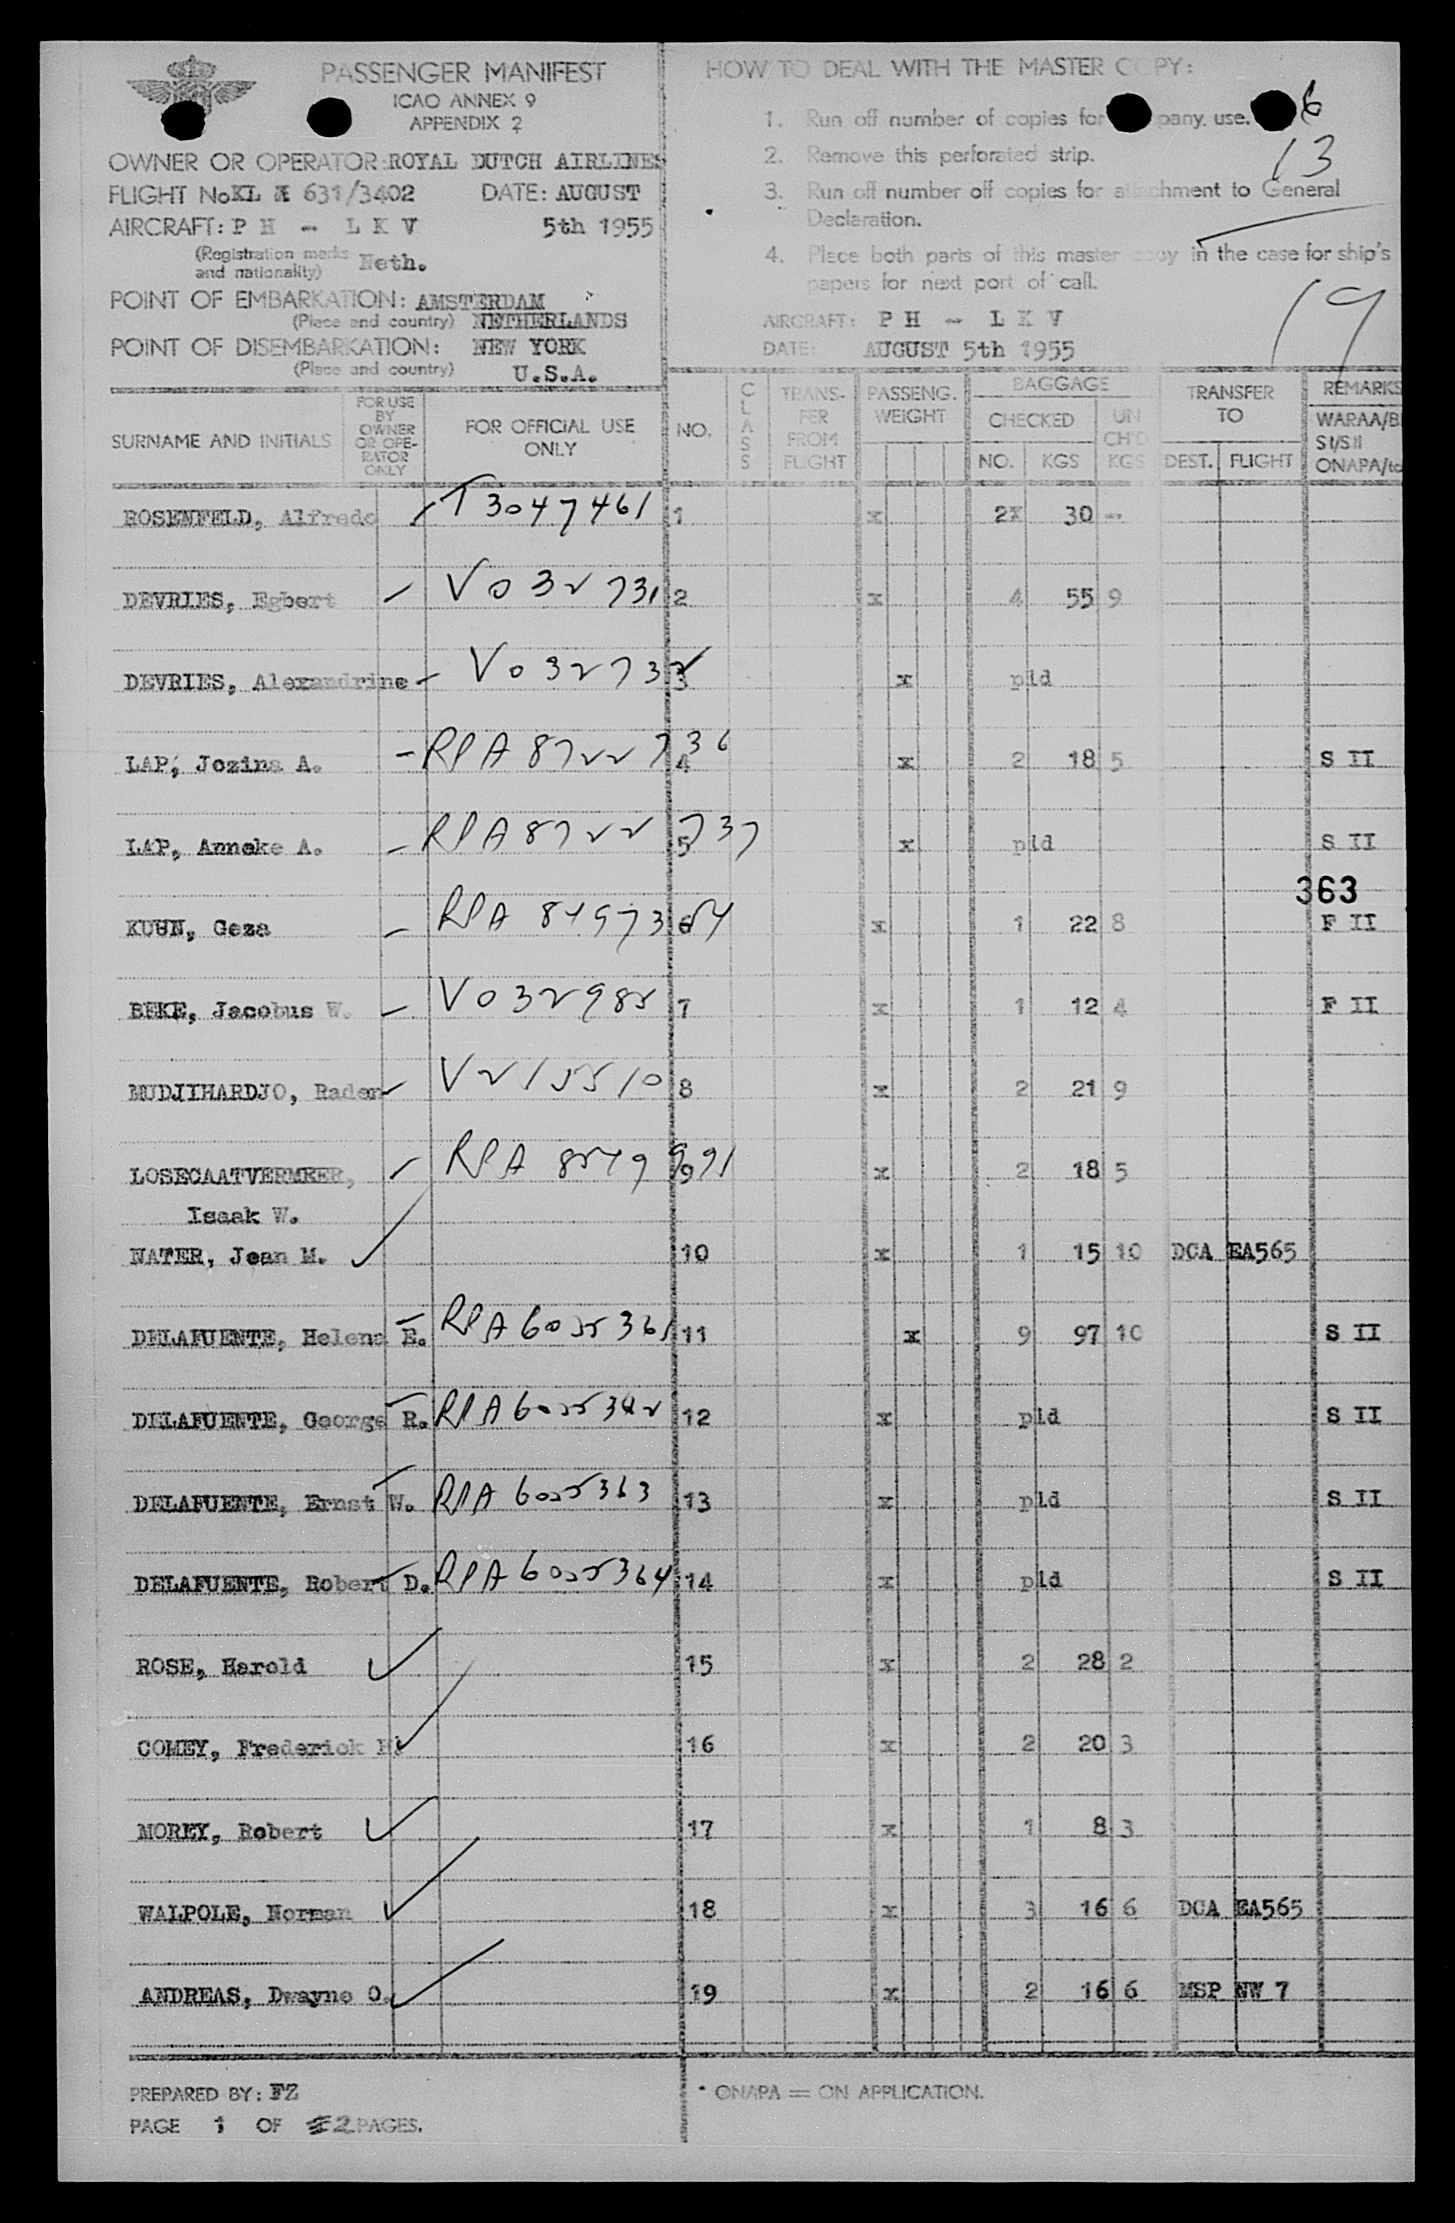 PASSENGER MANIFEST
ICAO ANNEX 9
APPENDIX 2
OWNER OR OPERATOR: ROYAL DUTCH AIRLINES
FLIGHT No KL 631/3402 DATE: AUGUST
AIRCRAFT: P H - L K V 5th 1955
(Registration marks
and nationality) Neth.
POINT OF EMBARKATION: AMSTERDAM
(Place and country) NETHERLANDS
POINT OF DISEMBARKATION: NEW YORK
(Place and country) U.S.A.
HOW TO DEAL WITH THE MASTER COPY:
1. Run off number of copies for pany. use.
2. Remove this perforated strip.
3. Run off number off copies for attachment to General
Declaration.
4. Place both parts of this master copy in the case for ship's
papers for next port of call.
AIRCRAFT: P H - L K V
DATE: AUGUST 5th 1955
6
13
19
SURNAME AND INITIALS FOR USE BY OWNER OR OPE- RATOR ONLY FOR OFFICIAL USE ONLY NO. CLASS TRANS- FER FROM FLIGHT PASSENG. WEIGHT BAGGAGE CHECKED NO. KGS UN CH'D KGS TRANSFER TO DEST. FLIGHT REMARKS WARAA/B SI/SII ONAPA/to
ROSENFELD, Alfredo T3047461 1 x 2x 30 --
DEVRIES, Egbert V032731 2 x 4 55 9
DEVRIES, Alexandrine V032732 3 x pld
LAP, Jozina A. RPA8722736 4 x 2 18 5 S II
LAP, Anneke A. RPA8722737 5 x pld S II
363
KUHN, Geza RPA 6 x 1 22 8 F II
BEKE, Jacobus W. V032985 7 x 1 12 4 F II
MUDJIHARDJO, Raden V215510 8 x 2 21 9
LOSECAATVERMEER, RPA 9 x 2 18 5
Isaak W.
NATER, Jean M. 10 x 1 15 10 DCA EA565
DELAFUENTE, Helena E. RPA6025361 11 x 9 97 10 S II
DELAFUENTE, George R. RPA6025362 12 x pld S II
DELAFUENTE, Ernst W. RPA6025363 13 x pld S II
DELAFUENTE, Robert D. RPA6025364 14 x pld S II
ROSE, Harold 15 x 2 28 2
COMEY, Frederick 16 x 2 20 3
MOREY, Robert 17 x 1 8 3
WALPOLE, Norman 18 x 3 16 6 DCA EA565
ANDREAS, Dwayne O. 19 x 2 16 6 MSP NW 7
PREPARED BY: FZ
PAGE 1 OF 2 PAGES.
* ONAPA = ON APPLICATION.